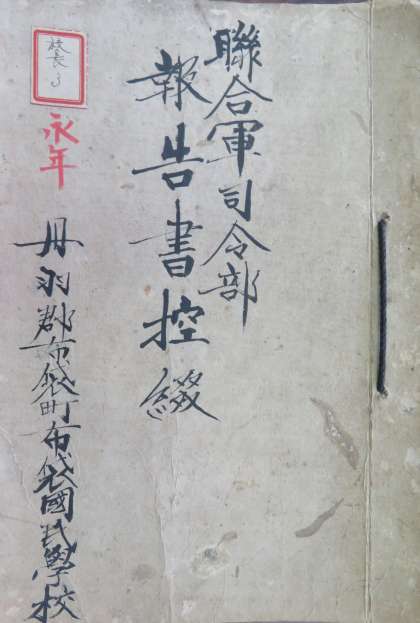 聯合軍司令部
報告書控綴
校長3
永年
丹羽郡布袋町布袋國民學校